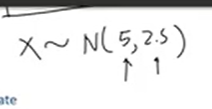 X ~ N(5, 2.5)
↑ ↑
ate